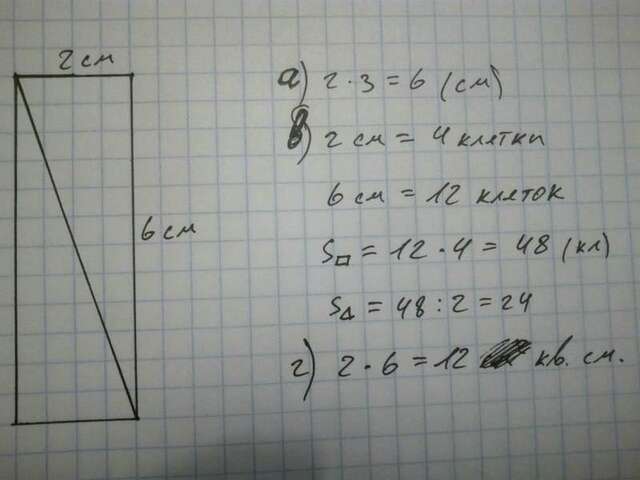 2 см
6 см
а) 2 · 3 = 6 (см)
в) 2 см = 4 клетки
6 см = 12 клеток
S□ = 12 · 4 = 48 (кл)
S△ = 48 : 2 = 24
г) 2 · 6 = 12 кв. см.